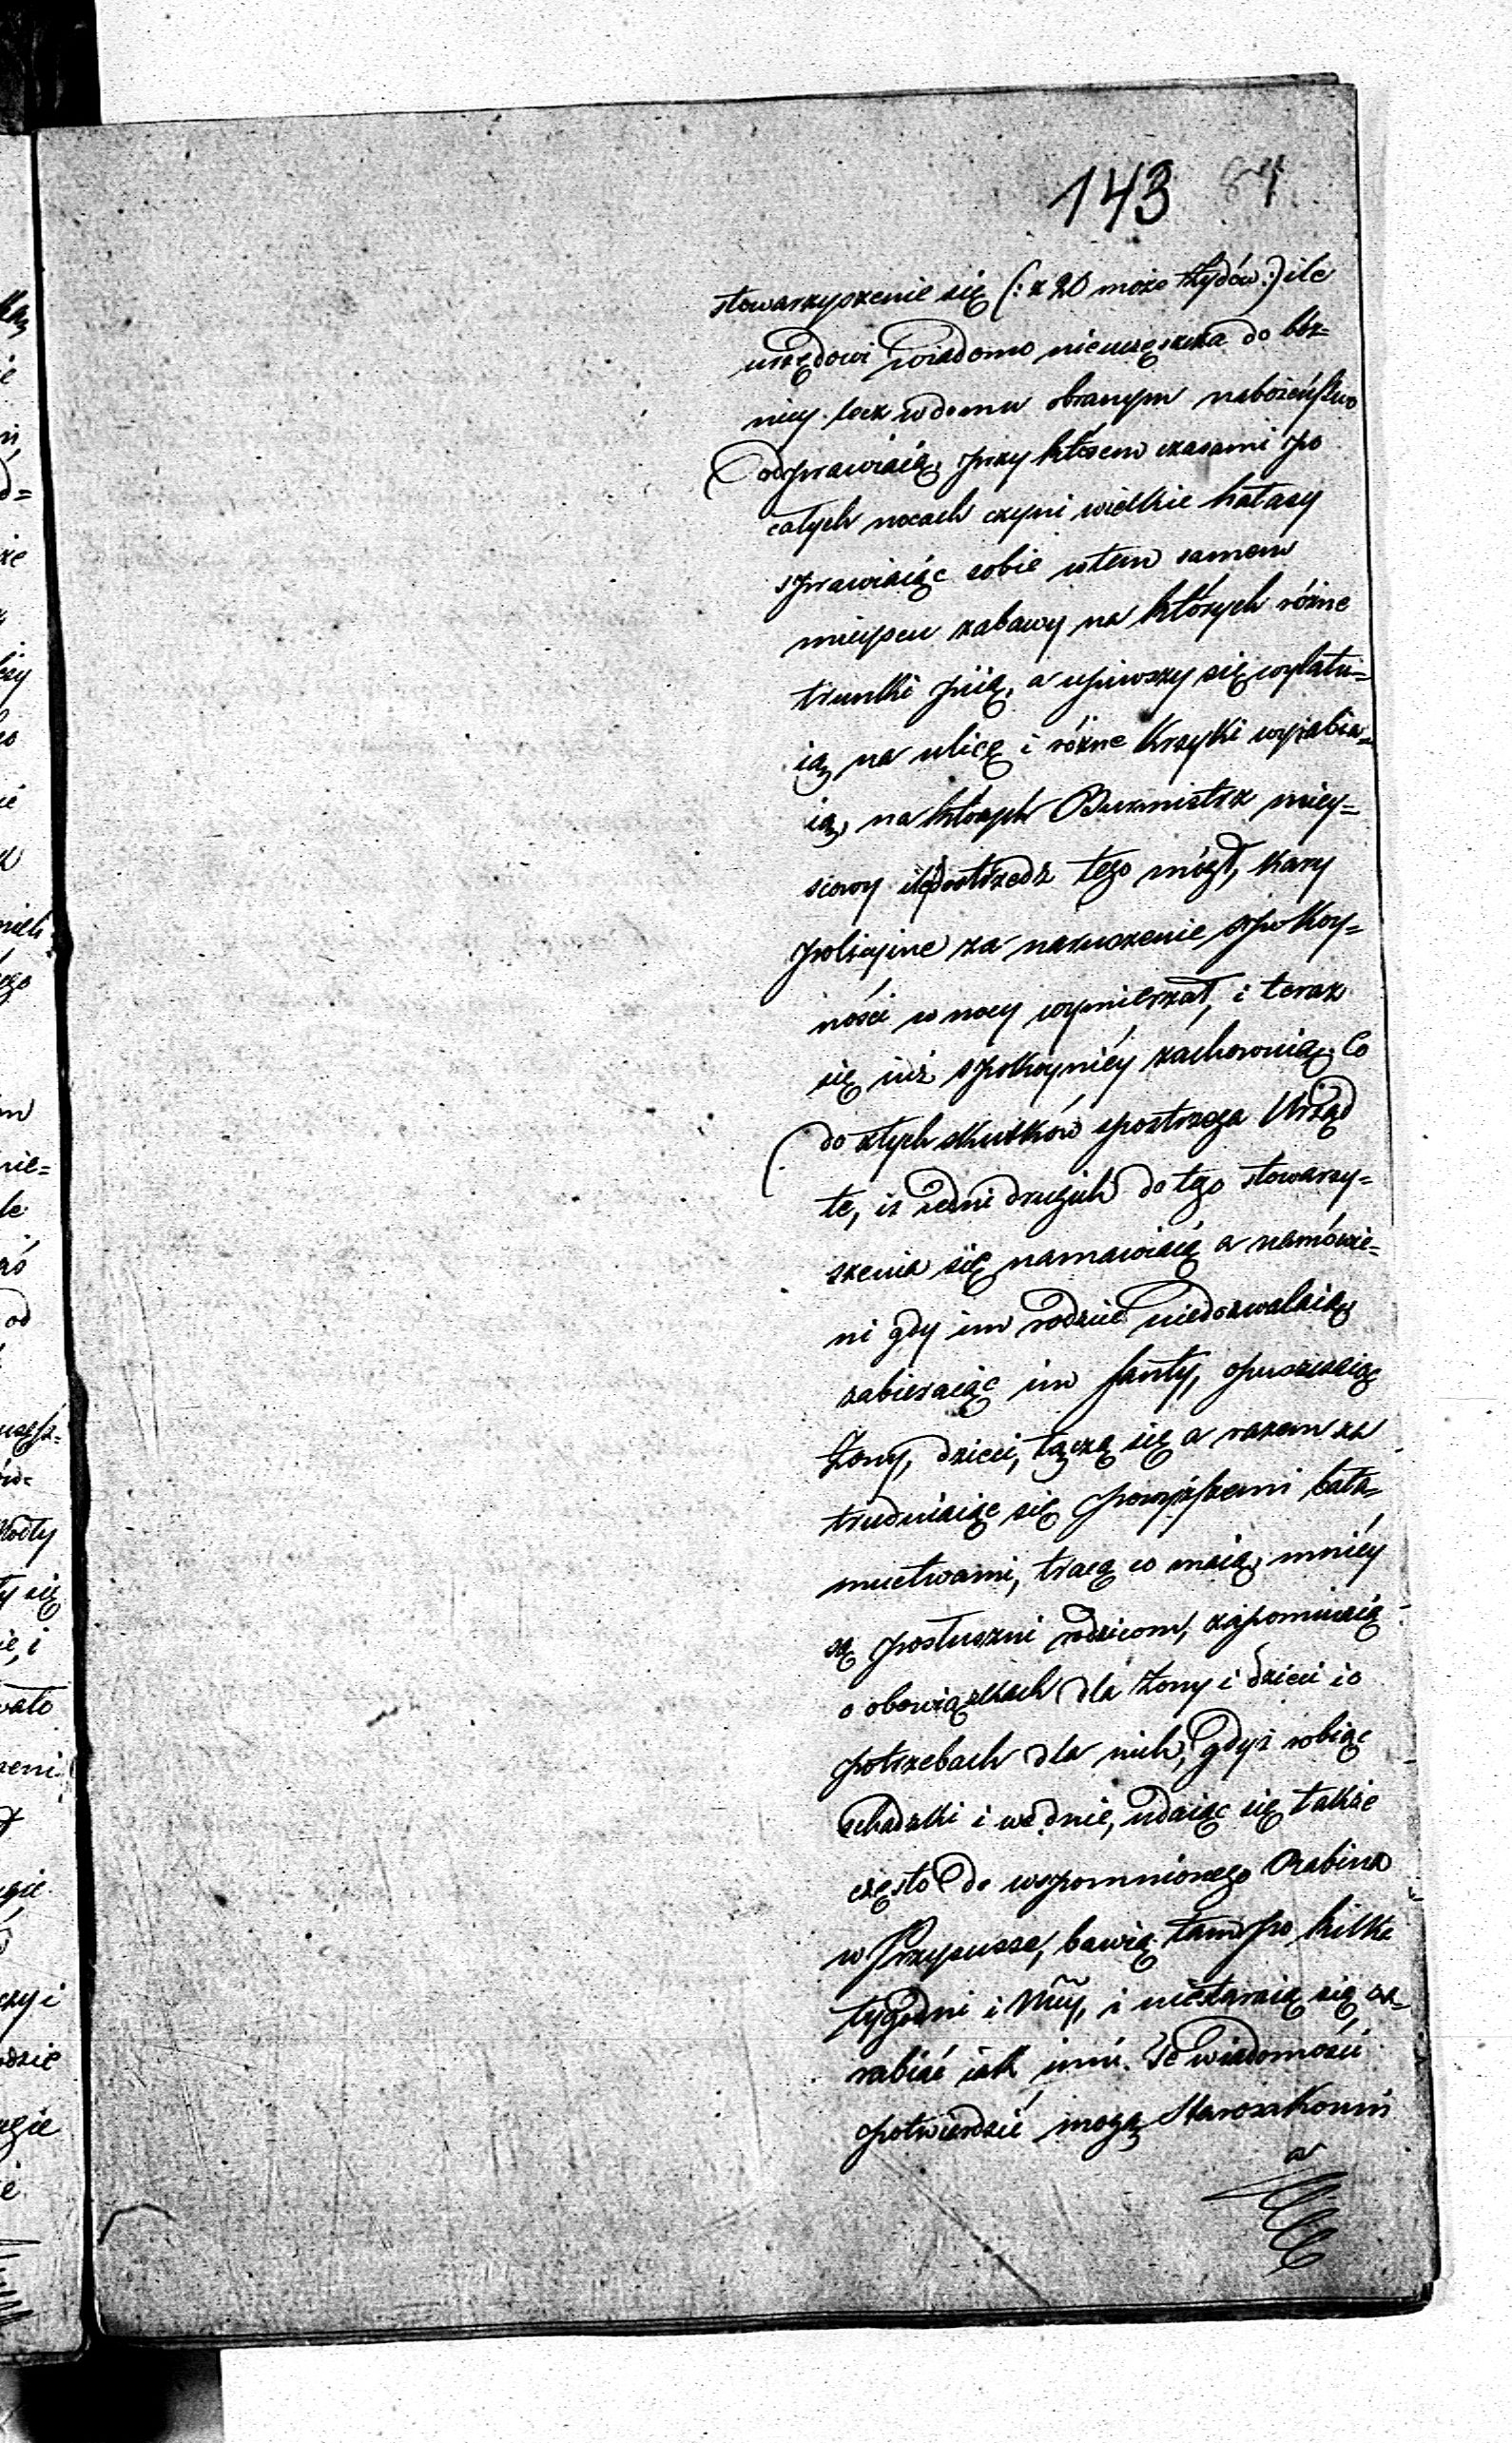 143
stowarzyszenie się (: z 20 może Żydów :) ile
urzędowi wiadomo nieuczęszcza do bóż=
nicy lecz w domu obranym nabożeństwo
odprawiaią, przy którem czasami po
całych nocach czyni wielkie hałasy
sprawiaiąc sobie w tem samem
mieyscu zabawy na których różne
trunki piią, a upiwszy się wylatu=
ią na ulicę i różne krzyki wyrabia=
ią, na których Burmistrz miey=
scowy ile dostrzedz tego mógł, kary
policyine za naruszenie spokoy=
ności w nocy wymierzał, i teraz
się iuż spokoyniéy zachowuią. Co
do złych skutków spostrzega Urząd
te, iż iedni drugich do tego stowarzy=
szenia się namawiaią a namówie=
ni gdy im rodzice niedozwalaią
zabieraiąc im fanty, opuszczaiąc
żony, dzieci, łączą się a razem za
trudniaiąc się powyższemi bała=
muctwami, tracą co maią, mniéy
są posłuszni rodzicom, zapominaią
o obowiązkach dla żony i dzieci i o
potrzebach dla nich, gdyż robiąc
schadzki i we dnie, udaiąc się także
często do wspomnionego Rabina
w Przysusze, bawią tam po kilka
tygodni i, i niestaraią się za=
rabiać iak inni. Te wiadomości
potwierdzić mogą Starozakonni
a